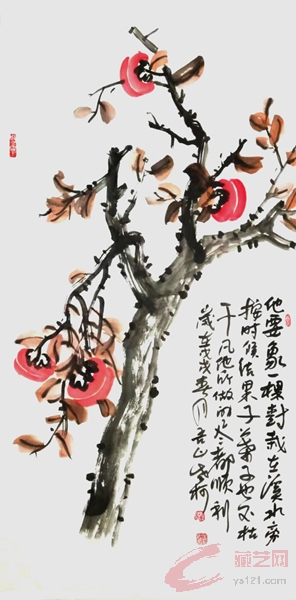 他要象一棵树栽在溪水旁
按时候结果子葉子也不枯
干凡他所做的尽都顺利
歲在戊戌春月
藏艺网
ys121.com